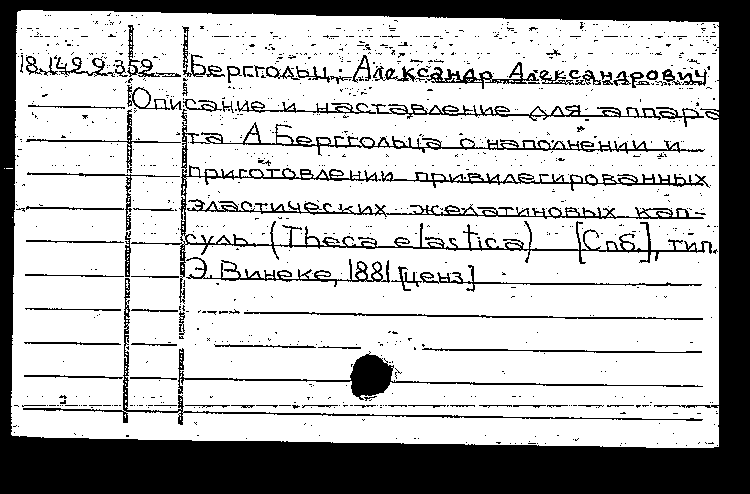 18.149.9.359 Берггольц, Александр Александрович
Описание и наставление для аппара
та А.Берггольца о наполнении и
приготовлении привилегированных
эластических желатиновых кап-
суль. (Theca elastica) [Спб.], тип.
Э. Винеке, 1881 [ценз.]